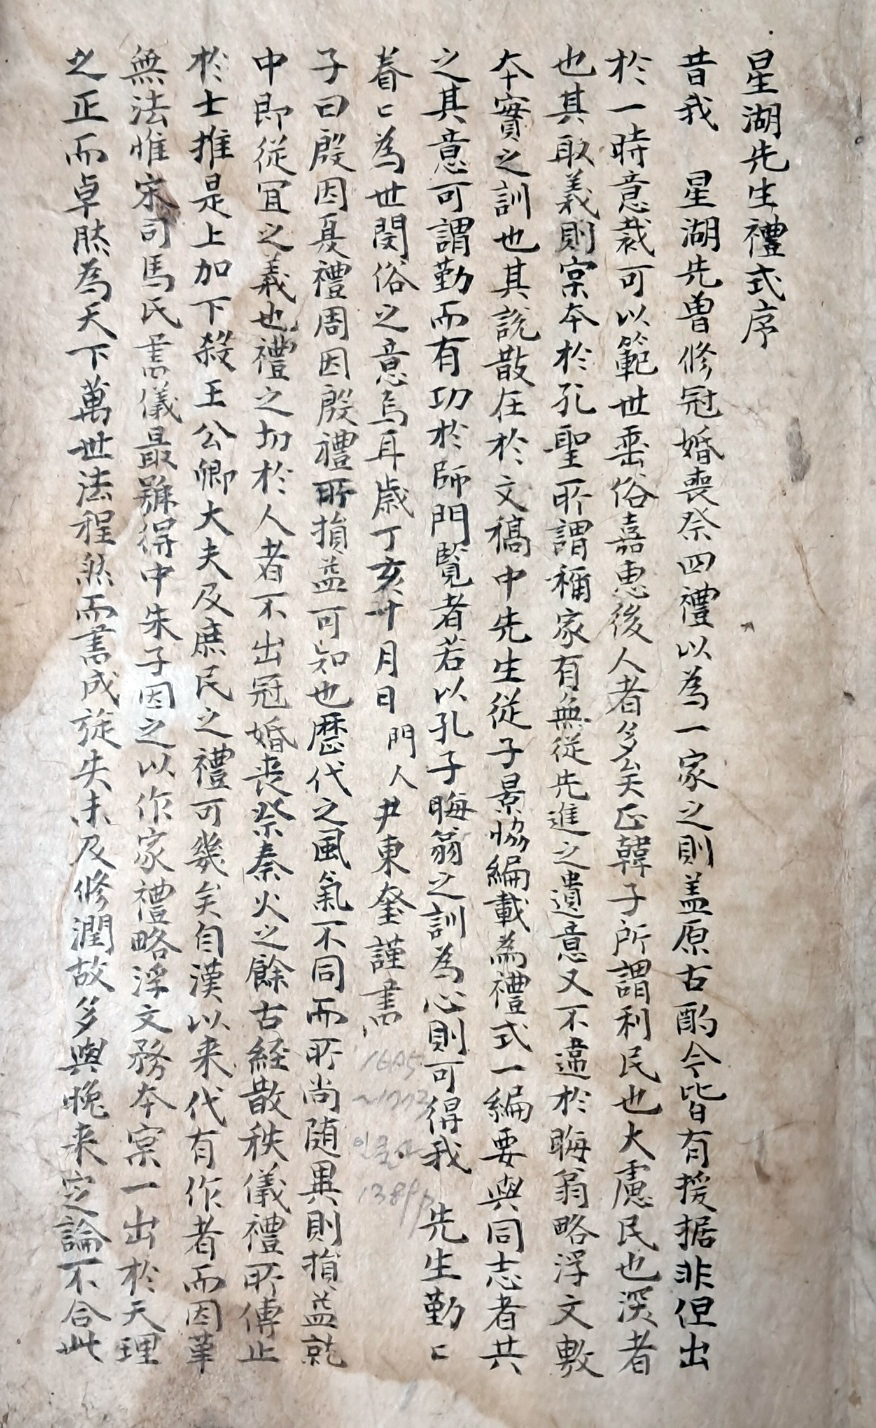 星湖先生禮式序
昔我　星湖先曽修冠婚喪祭四禮以為一家之則盖原古酌今皆有援据非但出
於一時意裁可以範世垂俗嘉惠後人者多矣正韓子所謂利民也大慮民也深者
也其取義則宲夲於孔聖所謂稱家有無従先進之遺意又不違於晦翁略浮文敷
夲實之訓也其說散在於文稿中先生從子景協編載為禮式一編要與同志者共
之其意可謂勤而有功於師門覧者若以孔子晦翁之訓為心則可得我　先生勤〻
眷〻為世閔俗之意焉耳歲丁亥十月日　門人尹東奎謹書
子曰殷因夏禮周因殷禮所損益可知也歴代之風氣不同而所尚随異則損益就
中即從冝之義也禮之切於人者不出冠婚喪祭秦火之餘古経散秩儀禮所傳止
於士推是上加下殺王公卿大夫及庶民之禮可幾矣自漢以来代有作者而因革
無法惟宋司馬氏書儀最號得中朱子因之以作家禮略浮文務夲宲一出於天理
之正而卓然為天下萬世法程然而書成旋失未及修潤故多與晚来定論不合此
1389